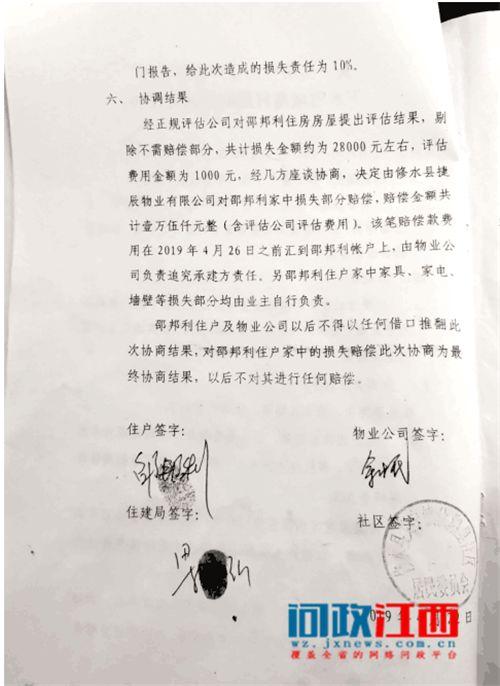 门报告，给此次造成的损失责任为10%。
六、 协调结果
经正规评估公司对邵邦利住房房屋提出评估结果，剔
除不需赔偿部分，共计损失金额约为28000元左右，评估
费用金额为1000元，经几方座谈协商，决定由修水县捷
辰物业有限公司对邵邦利家中损失部分赔偿，赔偿金额共
计壹万伍仟元整（含评估公司评估费用）。该笔赔偿款费
用在2019年4月26日之前汇到邵邦利帐户上，由物业公
司负责追究承建方责任。另邵邦利住户家中家具、家电、
墙壁等损失部分均由业主自行负责。
邵邦利住户及物业公司以后不得以任何借口推翻此
次协商结果，对邵邦利住户家中的损失赔偿此次协商为最
终协商结果，以后不对其进行任何赔偿。
住户签字： 物业公司签字：
邵邦利
住建局签字： 社区签字：
居民委员会
问政江西
wz.jxnews.com.cn
覆盖全省的网络问政平台